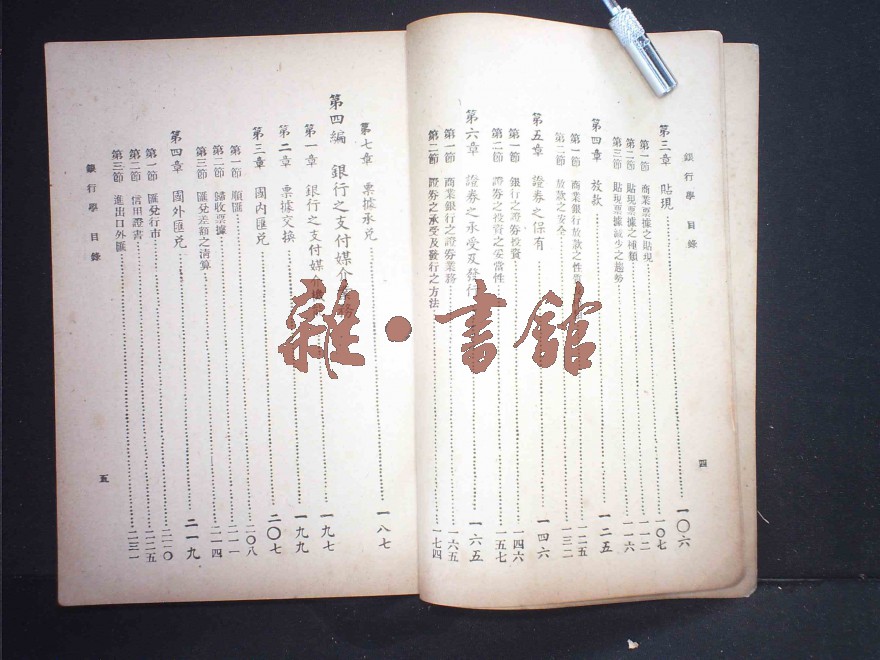 銀行學 目錄
第三章 貼現 一〇六
第一節 商業票據之貼現 一〇七
第二節 貼現票據之種類 一一二
第三節 貼現票據減少之趨勢 一一六
第四章 放款 一二五
第一節 商業銀行放款之性質 一二五
第二節 放款之安全 一三二
第五章 證券之保有 一四六
第一節 銀行之證券投資 一四六
第二節 證券之投資之妥當性 一五七
第六章 證券之承受及發行 一六五
第一節 商業銀行之證券業務 一六五
第二節 證券之承受及發行之方法 一七四
四
第七章 票據承兌 一八七
第四編 銀行之支付媒介 一九七
第一章 銀行之支付媒介 一九九
第二章 票據交換 一九九
第三章 國內匯兌 二〇七
第一節 順匯 二〇八
第二節 歸收票據 二一一
第三節 匯兌差額之清算 二一四
第四章 國外匯兌 二一九
第一節 匯兌行市 二二〇
第二節 信用證書 二二五
第三節 進出口外匯 二三一
銀行學 目錄
五
雜·書館